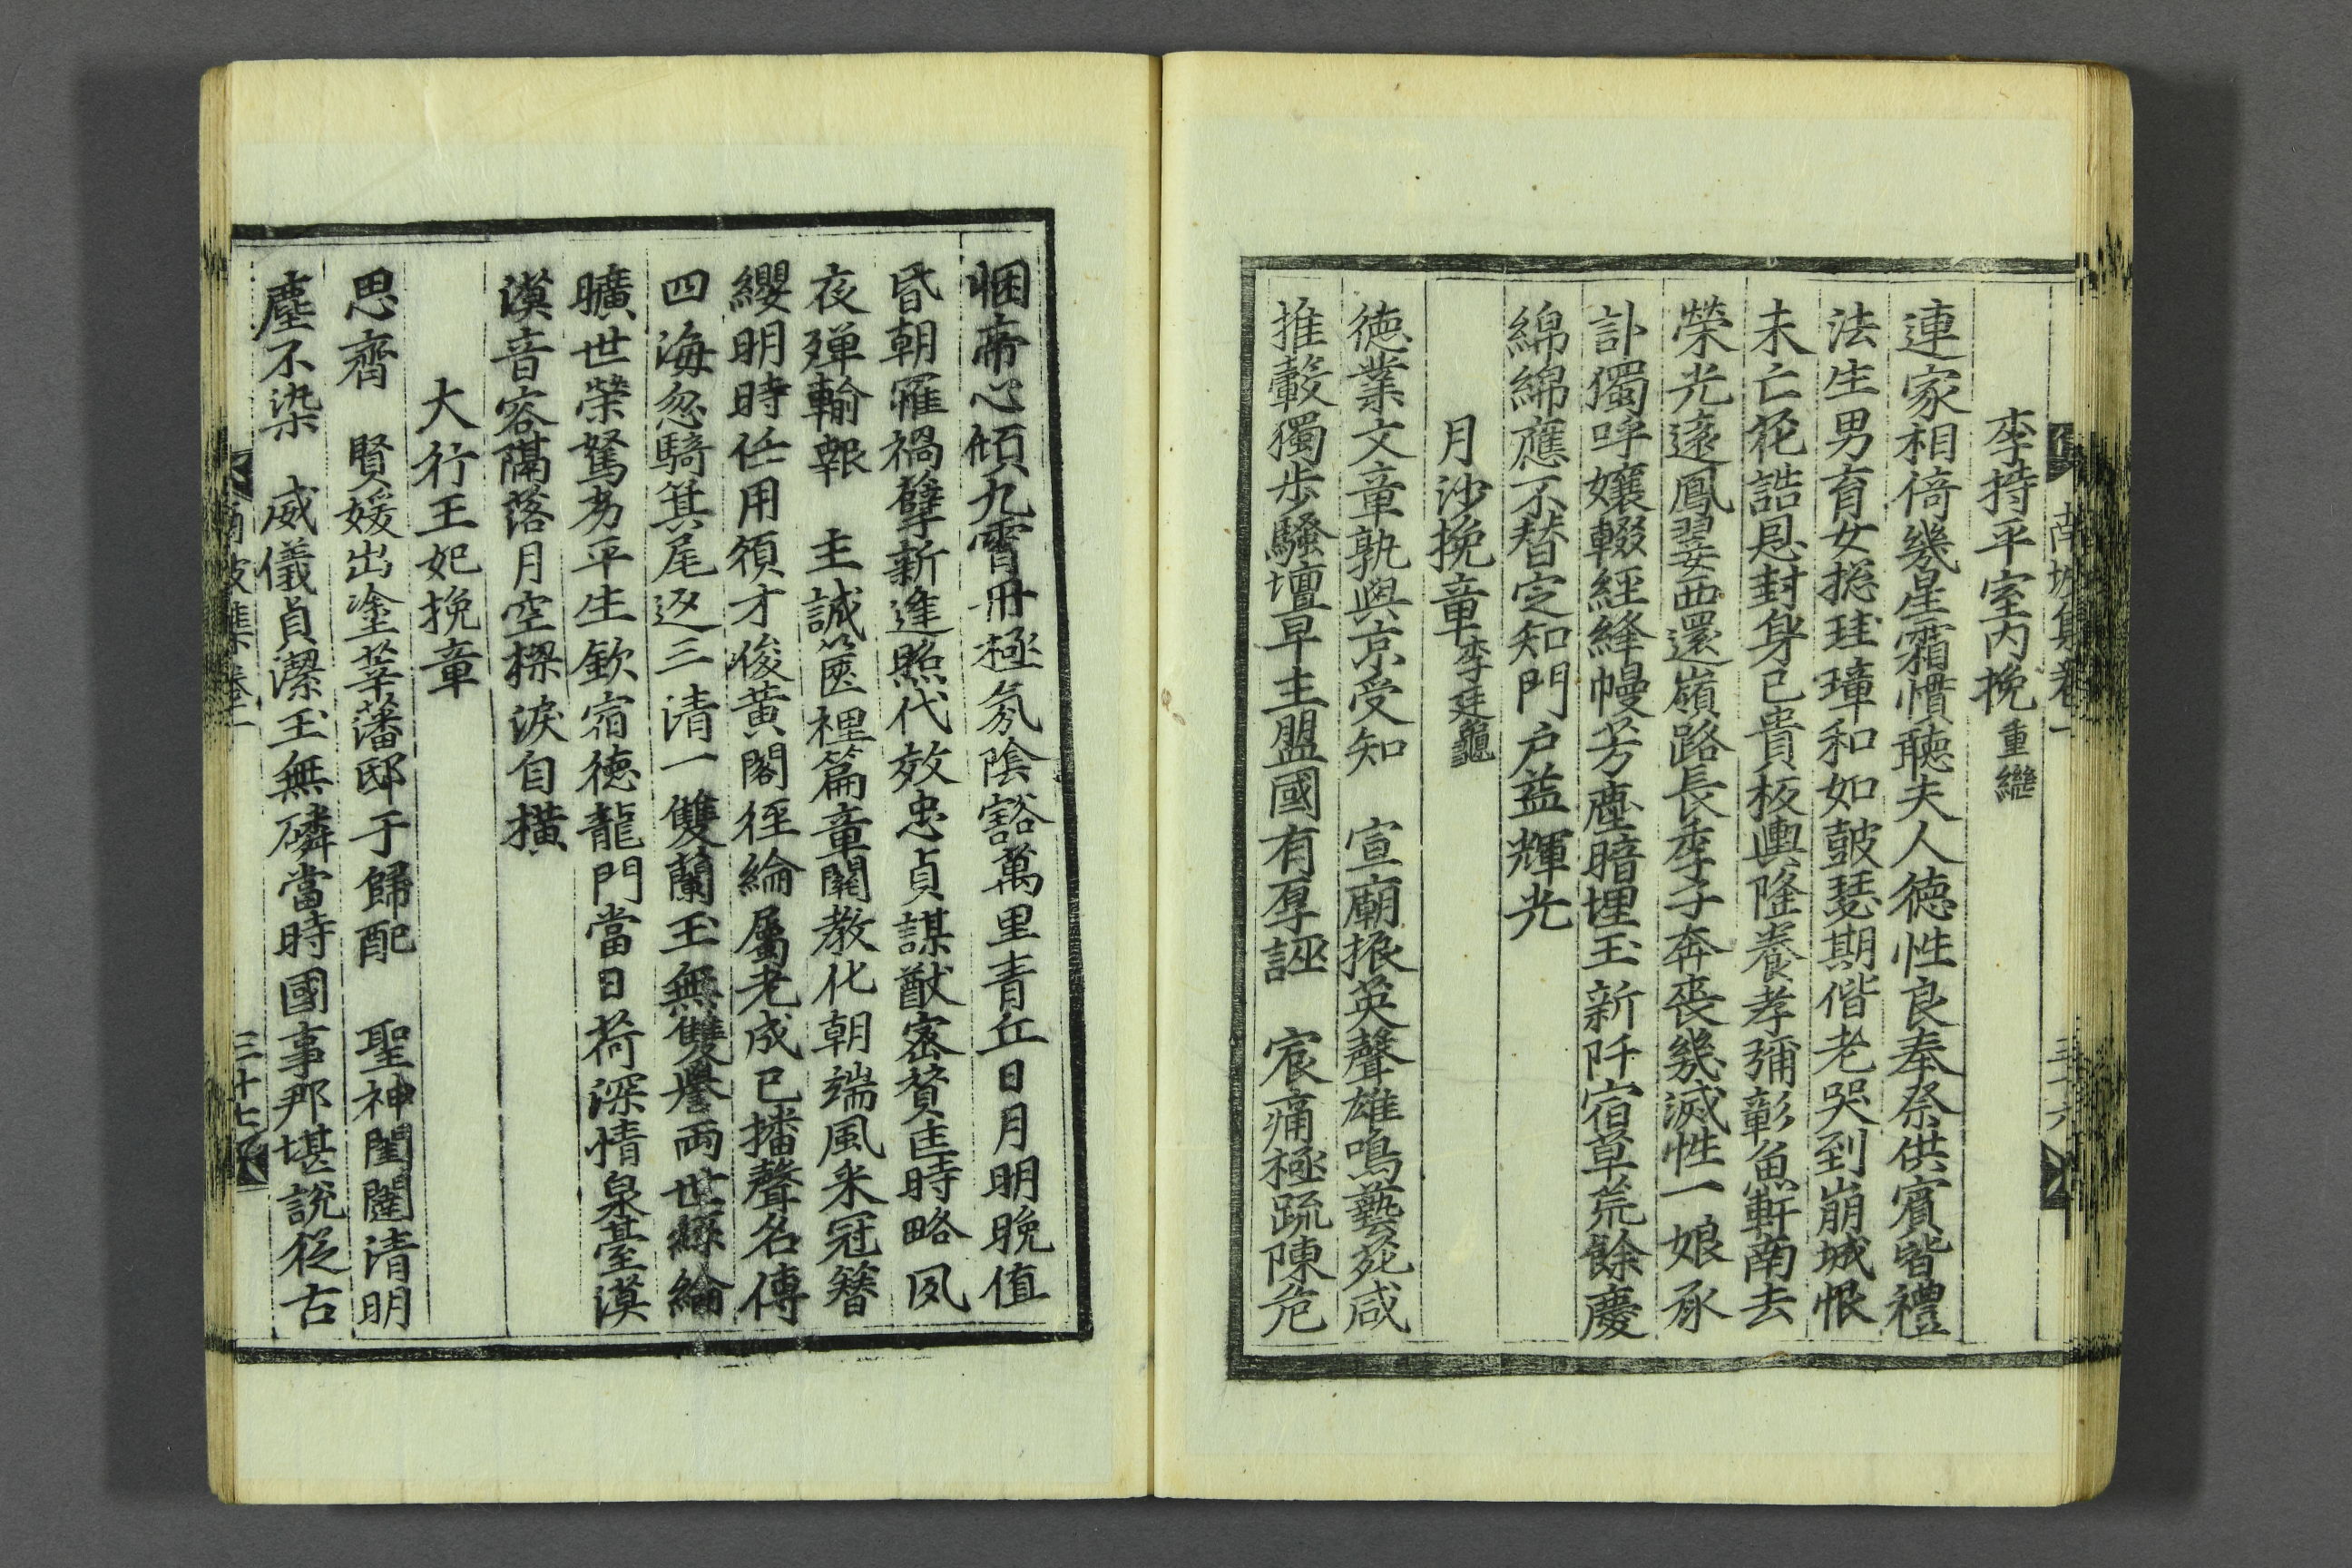 南坡集卷一
三十六
李持平室內挽 重繼
連家相倚幾星霜慣聽夫人德性良奉祭供賓皆禮
法生男育女摠珪璋和如皷瑟期偕老哭到崩城恨
未亡花誥恩封身已貴板輿隆養孝彌彰魚軒南去
榮光遠鳳翣西還嶺路長季子奔喪幾滅性一娘承
訃獨呼孃輟經絳幔芳塵暗埋玉新阡宿草荒餘慶
綿綿應不替定知門戶益輝光
月沙挽章 李廷龜
德業文章孰與京受知 宣廟振英聲雄鳴藝苑咸
推轂獨步騷壇早主盟國有厚誣 宸痛極疏陳危
悃帝心傾九霄冊極氛陰豁萬里靑丘日月明晩值
昏朝罹禍孼新逢熙代效忠貞謀猷密贊匡時略夙
夜殫輸報 主誠篋裡篇章關教化朝端風采冠簪
纓明時任用須才俊黃閣經綸屬老成已播聲名傳
四海忽騎箕尾返三淸一雙蘭玉無雙譽兩世絲綸
曠世榮駑劣平生欽宿德龍門當日荷深情泉臺漠
漠音容隔落月空樑淚自橫
大行王妃挽章
思齊 賢媛出塗莘藩邸于歸配 聖神閨闥淸明
塵不染 威儀貞潔玉無磷當時國事那堪說從古
南坡集卷一
三十七